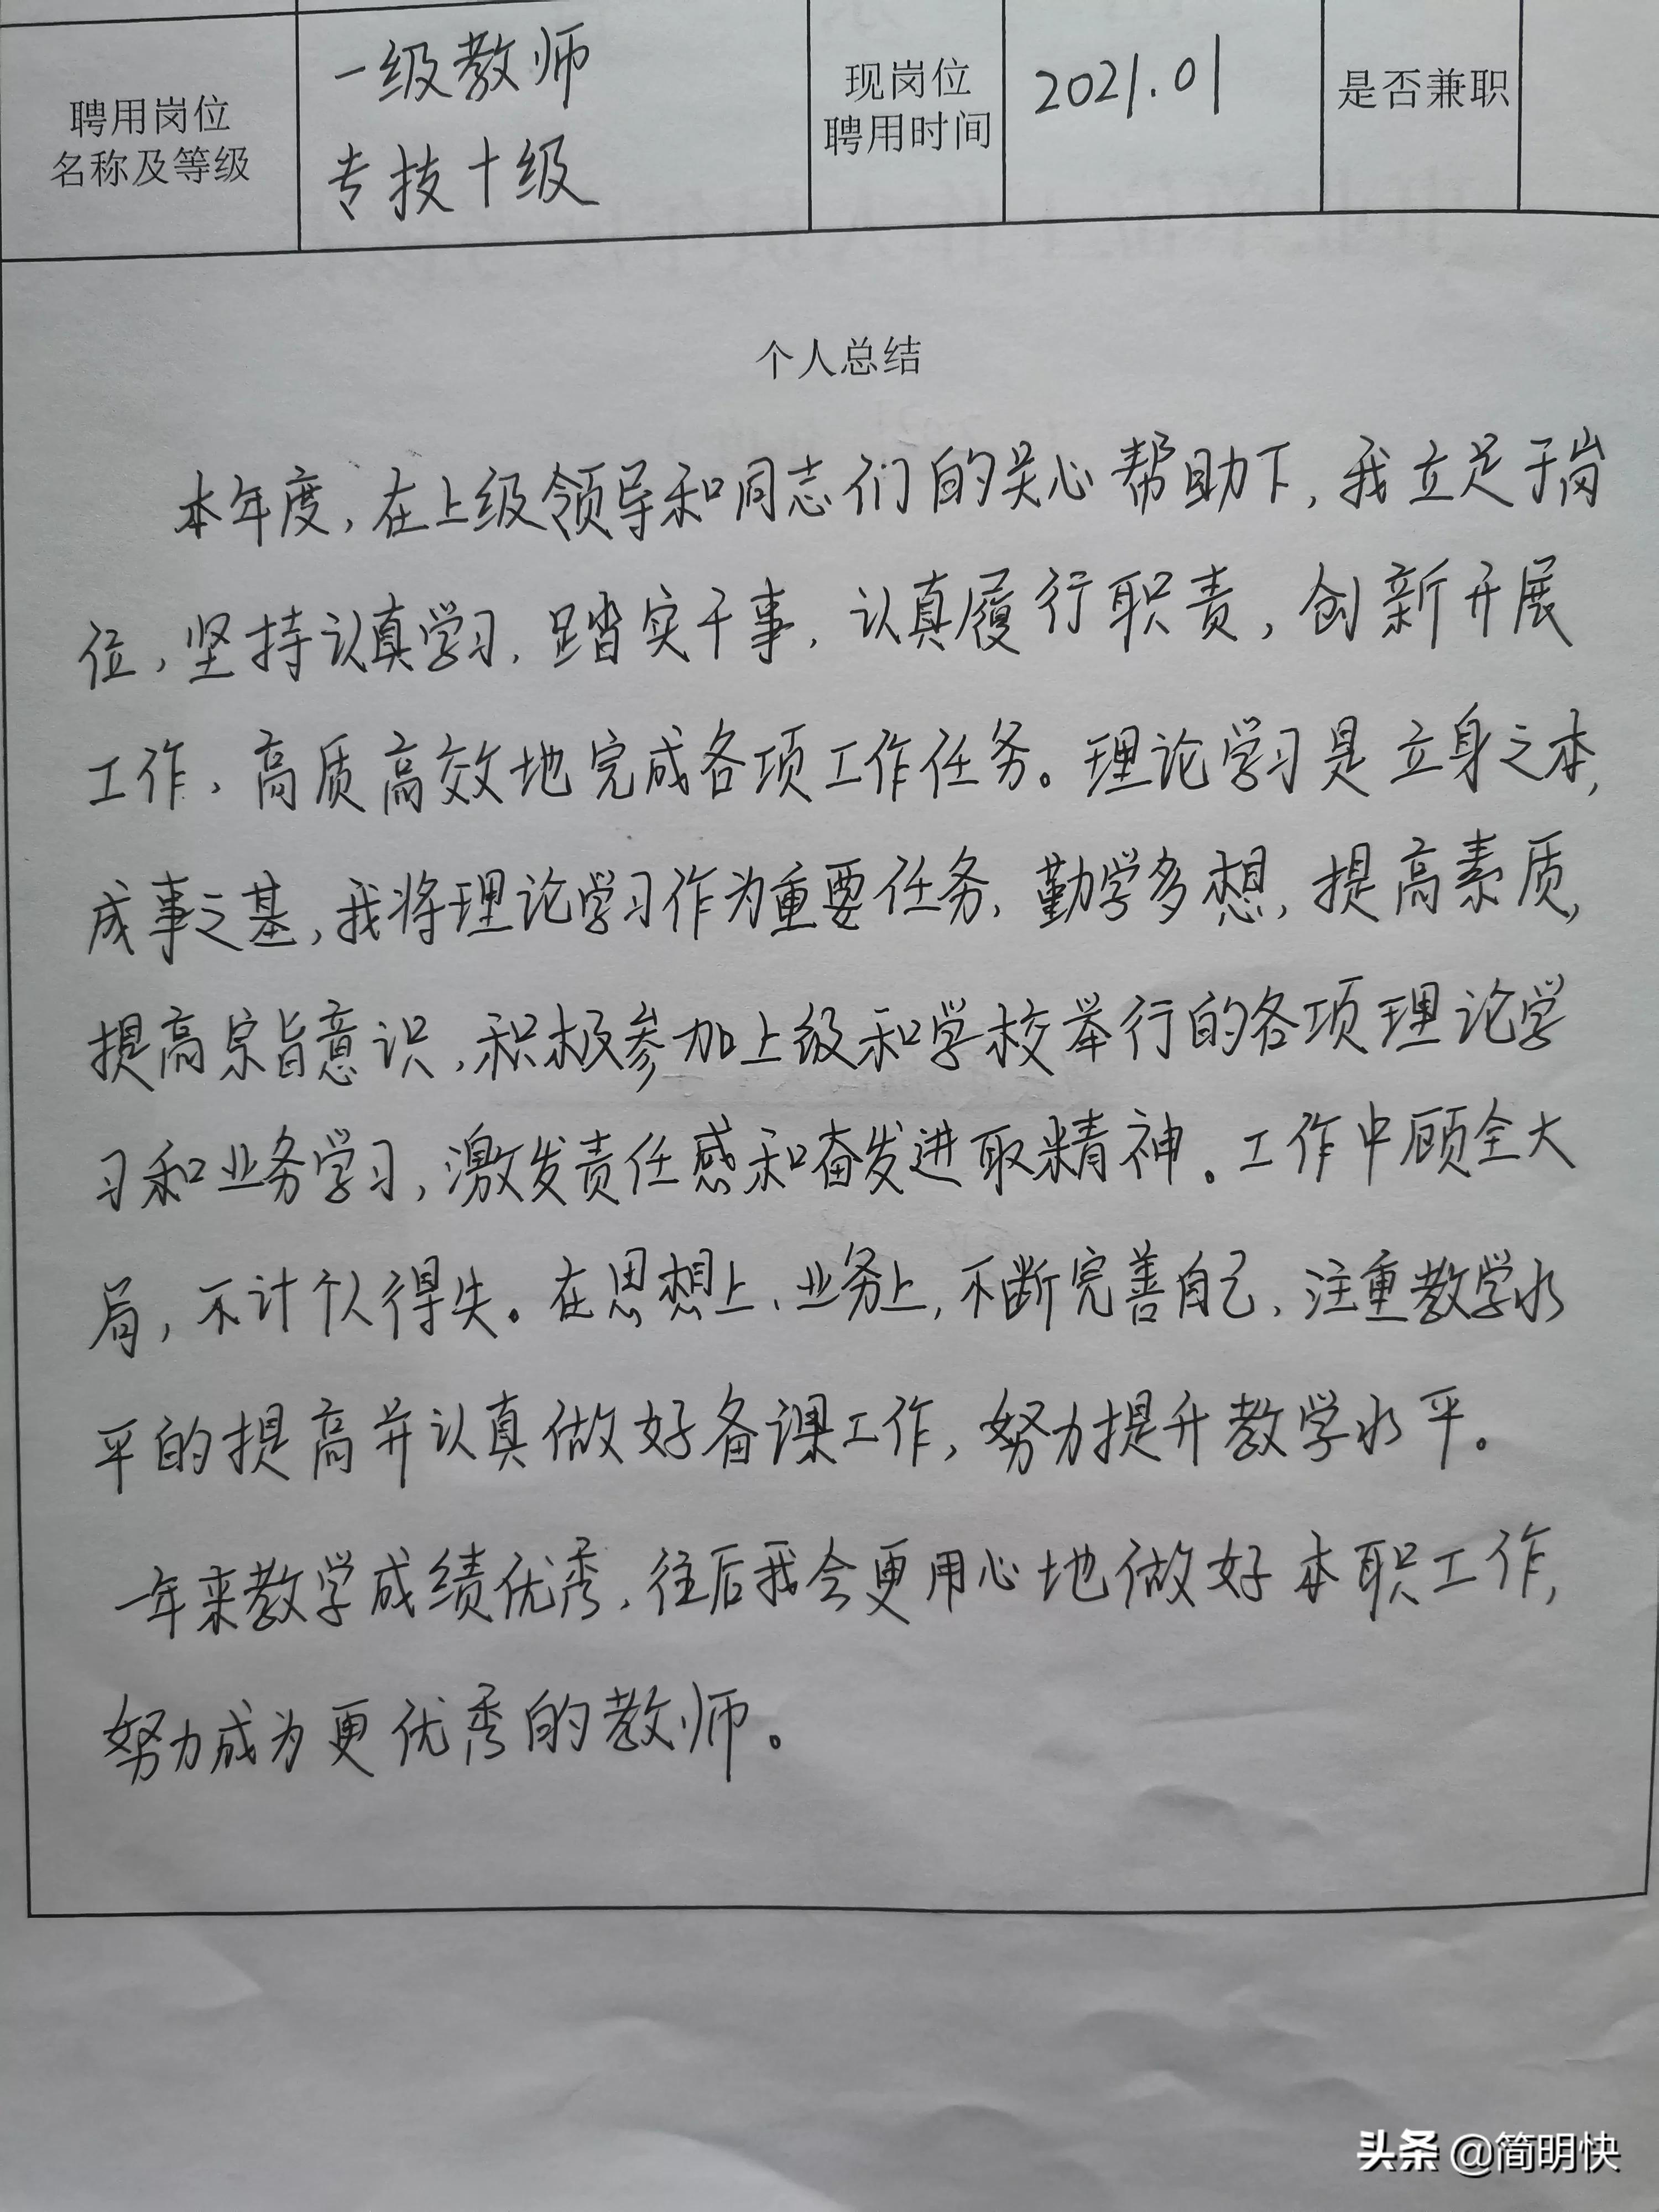 聘用岗位
名称及等级
一级教师
专技十级
现岗位
聘用时间
2021.01
是否兼职
个人总结
本年度,在上级领导和同志们的关心帮助下,我立足于岗
位,坚持认真学习,踏实干事,认真履行职责,创新开展
工作,高质高效地完成各项工作任务。理论学习是立身之本,
成事之基,我将理论学习作为重要任务,勤学多想,提高素质,
提高宗旨意识,积极参加上级和学校举行的各项理论学
习和业务学习,激发责任感和奋发进取精神。工作中顾全大
局,不计个人得失。在思想上、业务上,不断完善自己,注重教学水
平的提高并认真做好备课工作,努力提升教学水平。
一年来教学成绩优秀,往后我会更用心地做好本职工作,
努力成为更优秀的教师。
头条 @简明快